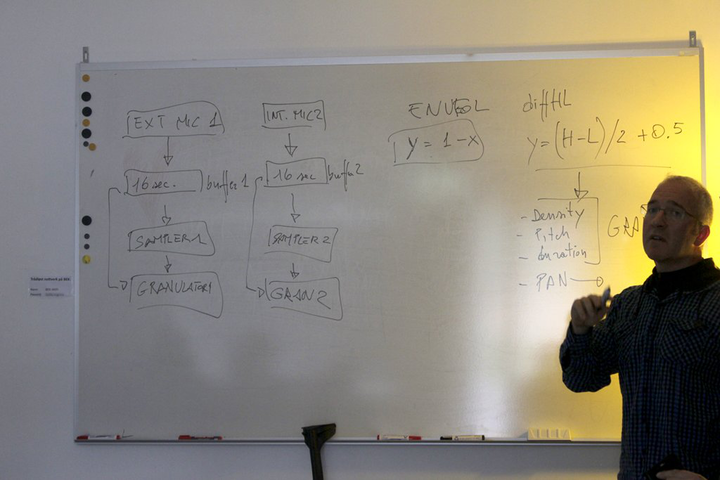 EXT MIC 1
16 sec. buffer 1
SAMPLER 1
GRANULATOR 1
INT. MIC 2
16 sec buffer 2
SAMPLER 2
GRAN 2
ENVFOL
y = 1 - x
diffHL
y = (H-L)/2 + 0.5
- Density
- Pitch
- duration
- PAN
GRAN